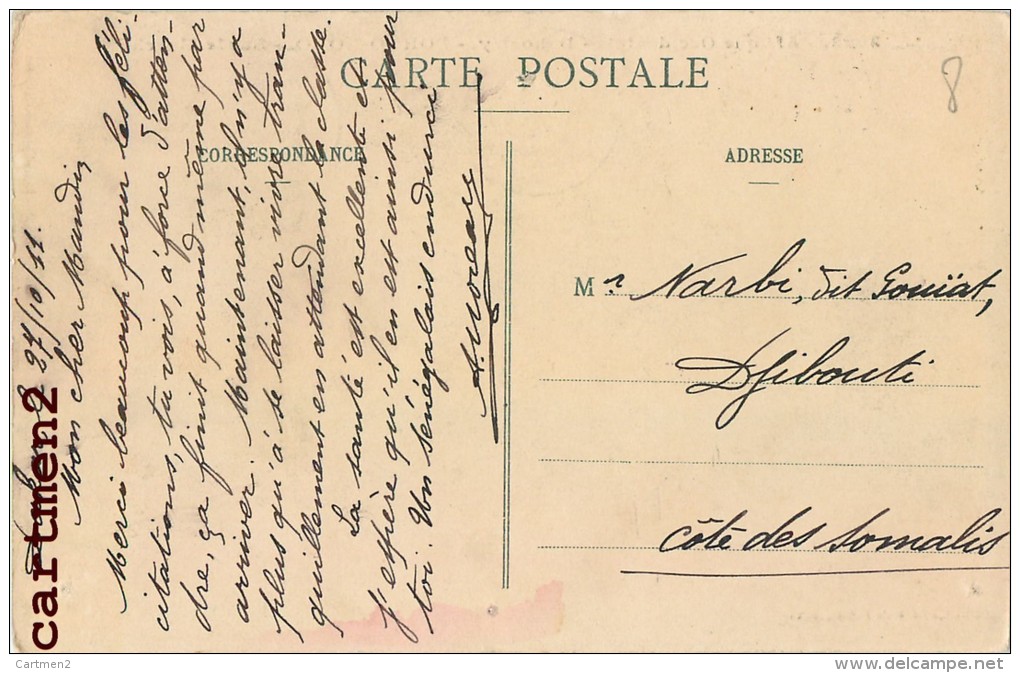 CARTE POSTALE
CORRESPONDANCE
ADRESSE
8
27/10/11.
Mon cher Maudin
Merci beaucoup pour les féli-
citations, tu vois, à force d'atten-
dre, ça finit quand même par
arriver. Maintenant, il n'y a
plus qu'à se laisser vivre tran-
quillement en attendant la classe.
La santé est excellente et
j'espère qu'il en est ainsi pour
toi. Un Sénégalais endurci
A. Moreau
Mr Narbi, dit Gouïat,
Djibouti
côte des Somalis
cartmen2
Cartmen2
www.delcampe.net